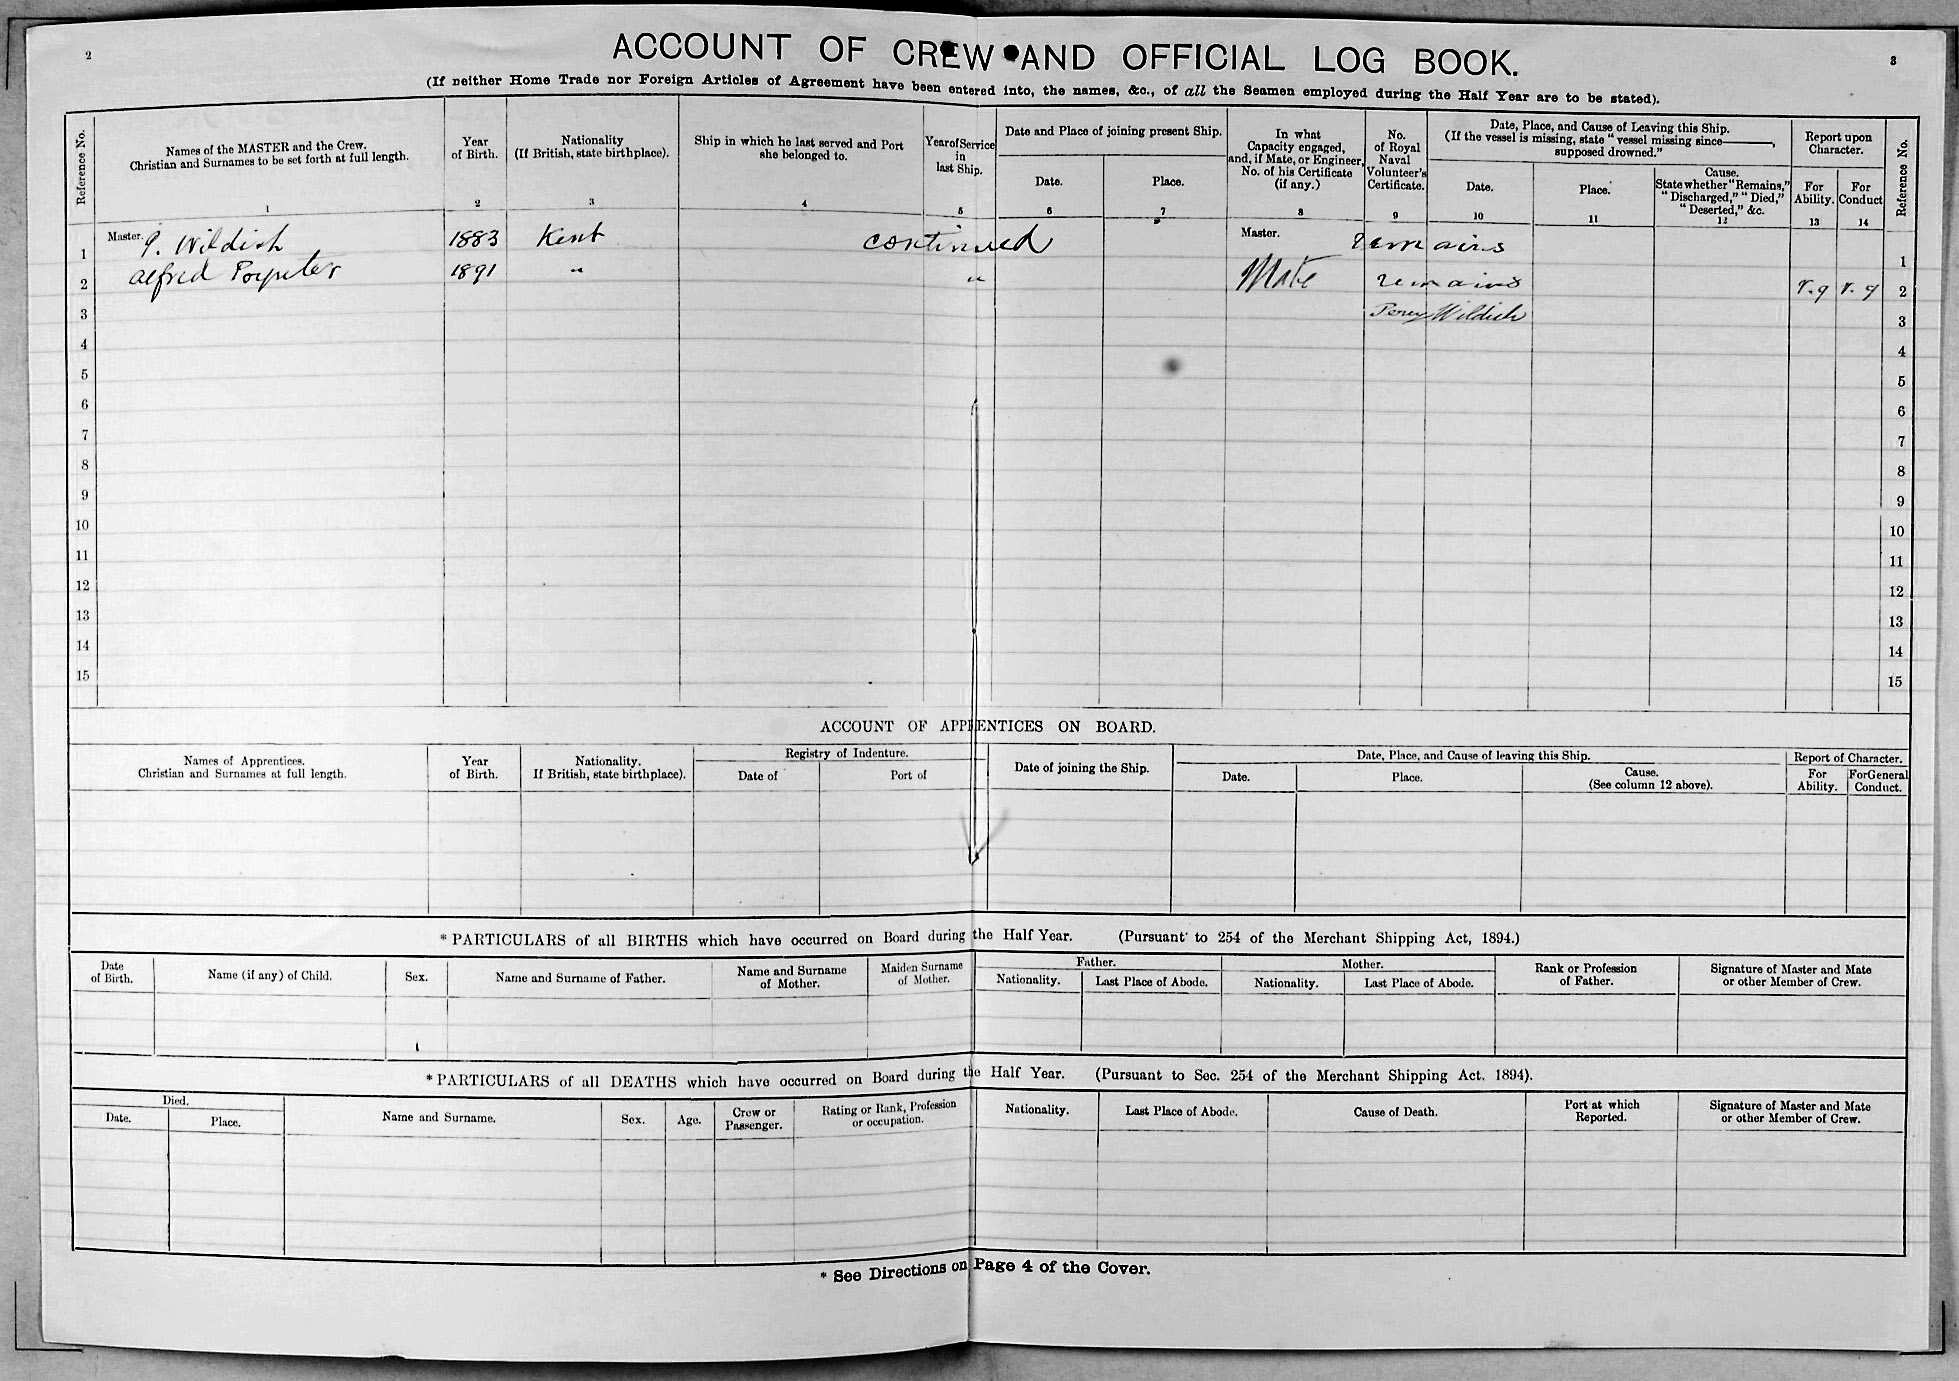 2
3
ACCOUNT OF CREW AND OFFICIAL LOG BOOK.
(If neither Home Trade nor Foreign Articles of Agreement have been entered into, the names, &c., of all the Seamen employed during the Half Year are to be stated).
Reference No.
Names of the MASTER and the Crew.
Christian and Surnames to be set forth at full length.
1
Year
of Birth.
2
Nationality
(If British, state birthplace).
3
Ship in which he last served and Port
she belonged to.
4
Year of Service
in
last Ship.
5
Date and Place of joining present Ship.
Date.
6
Place.
7
In what
Capacity engaged,
and, if Mate, or Engineer,
No. of his Certificate
(if any.)
8
No.
of Royal
Naval
Volunteer's
Certificate.
9
Date, Place, and Cause of Leaving this Ship.
(If the vessel is missing, state "vessel missing since———,
supposed drowned."
Date.
10
Place.
11
Cause.
State whether "Remains,"
"Discharged," "Died,"
"Deserted," &c.
12
Report upon
Character.
For
Ability.
13
For
Conduct
14
Reference No.
1 Master. P. Wildish 1883 Kent continued Master. remains 1
2 Alfred Poynter 1891 " " Mate remains v.g v.g 2
3 Percy Wildish 3
4 4
5 5
6 6
7 7
8 8
9 9
10 10
11 11
12 12
13 13
14 14
15 15
ACCOUNT OF APPRENTICES ON BOARD.
Names of Apprentices.
Christian and Surnames at full length.
Year
of Birth.
Nationality.
If British, state birthplace).
Registry of Indenture.
Date of
Port of
Date of joining the Ship.
Date, Place, and Cause of leaving this Ship.
Date.
Place.
Cause.
(See column 12 above).
Report of Character.
For
Ability.
For General
Conduct.
* PARTICULARS of all BIRTHS which have occurred on Board during the Half Year. (Pursuant to 254 of the Merchant Shipping Act, 1894.)
Date
of Birth.
Name (if any) of Child.
Sex.
Name and Surname of Father.
Name and Surname
of Mother.
Maiden Surname
of Mother.
Father.
Nationality.
Last Place of Abode.
Mother.
Nationality.
Last Place of Abode.
Rank or Profession
of Father.
Signature of Master and Mate
or other Member of Crew.
* PARTICULARS of all DEATHS which have occurred on Board during the Half Year. (Pursuant to Sec. 254 of the Merchant Shipping Act. 1894).
Died.
Date.
Place.
Name and Surname.
Sex.
Age.
Crew or
Passenger.
Rating or Rank, Profession
or occupation.
Nationality.
Last Place of Abode.
Cause of Death.
Port at which
Reported.
Signature of Master and Mate
or other Member of Crew.
* See Directions on Page 4 of the Cover.